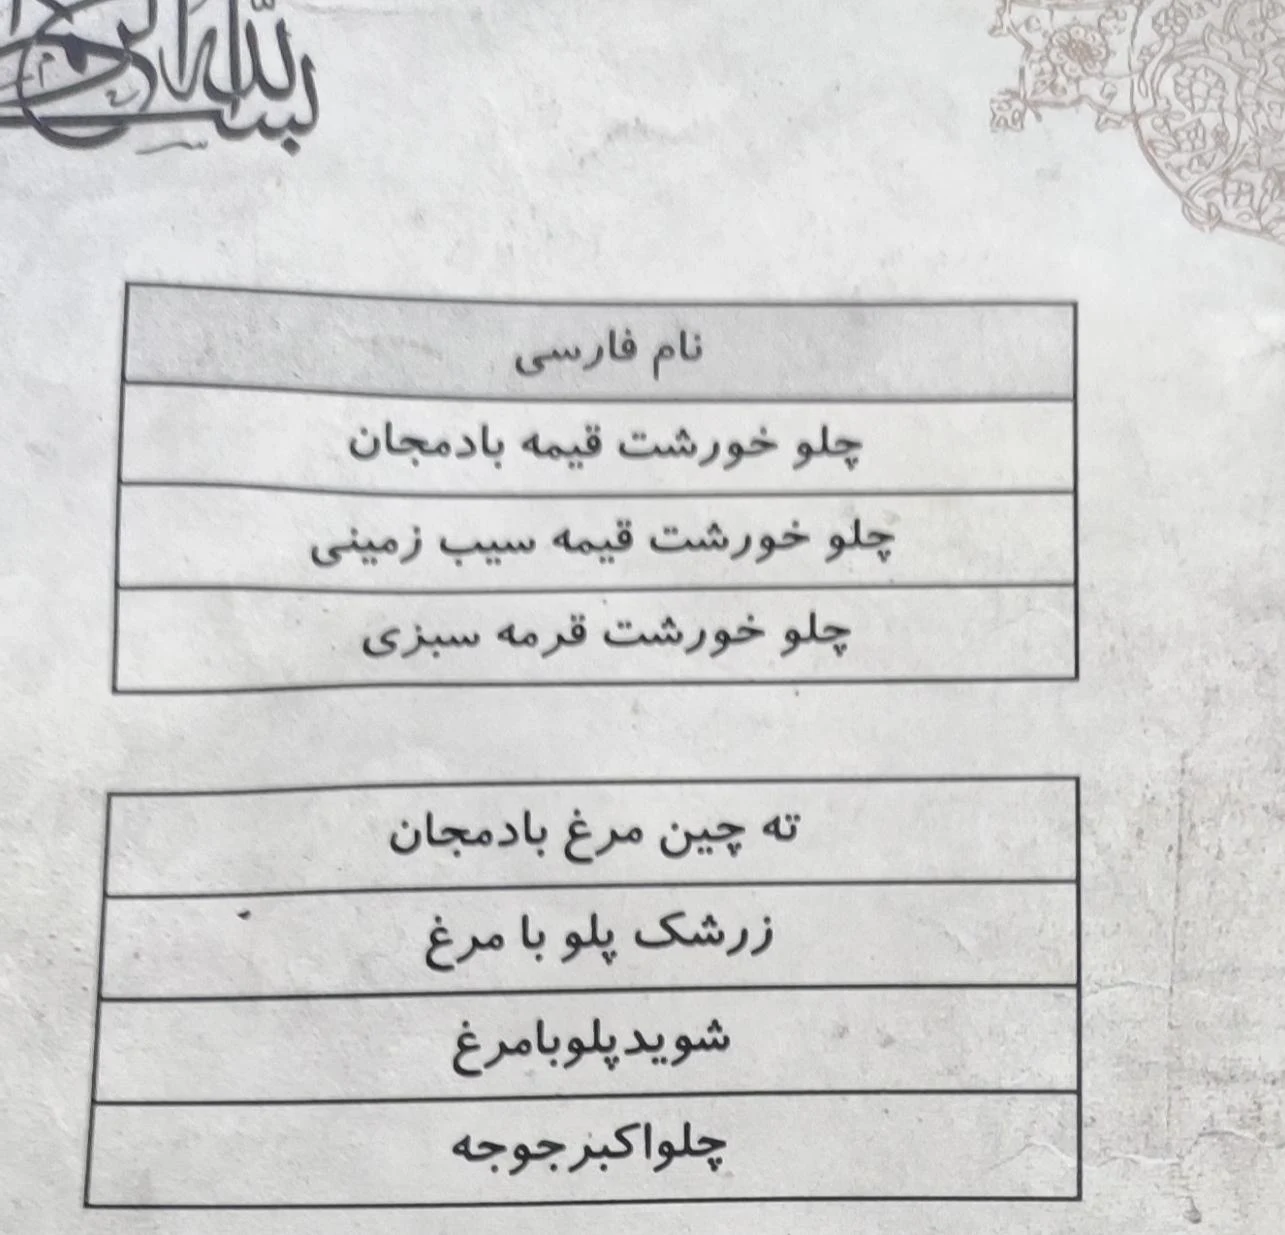 نام فارسی
چلو خورشت قیمه بادمجان
چلو خورشت قیمه سیب زمینی
چلو خورشت قرمه سبزی
ته چین مرغ بادمجان
زرشک پلو با مرغ
شویدپلوبامرغ
چلواکبرجوجه